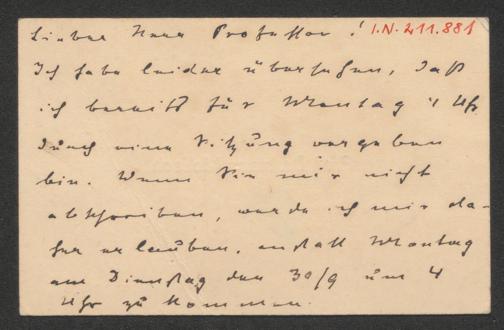 Lieber Herr Professor! I.N. 211.881
Ich habe leider übersehen, daß
ich bereits für Montag 4 Uhr
durch eine Sitzung vergeben
bin. Wenn Sie mir nicht
abschreiben, werde ich mir da-
her erlauben, anstatt Montag
am Dienstag den 30/9 um 4
Uhr zu kommen.